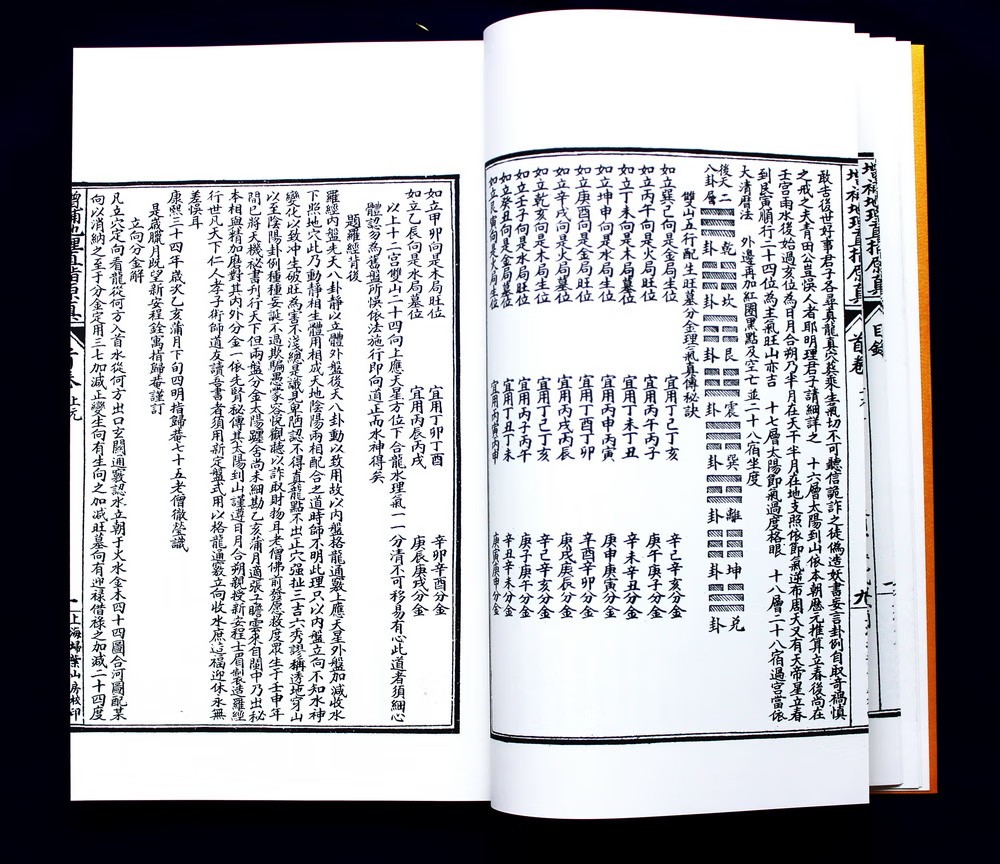 敢告後世好事君子各尋真龍真穴葬乘生氣切不可聽信詭詐之徒偽造妖書妄言卦例自取奇禍慎
之戒之夫青田公豈悞人者耶明理君子請細詳之 十六層太陽到山依本朝歷元推算立春後尚在
壬宮雨水後始過亥位為日月合朔乃半月在天干半月在地支照依節氣逆布周天又有天帝星立春
到艮寅順行二十四位為主氣旺山亦吉 十七層太陽節氣過度格眼 十八層二十八宿過宮當依
大清曆法 外邊再加紅圈黑點及空亡並二十八宿坐度
後天二
八卦層
卦乾
卦坎
卦艮
卦震
卦巽
卦離
卦坤
卦兌
雙山五行配生旺墓分金理氣真傳秘訣
如立巽巳向是金局生位 宜用丁巳丁亥 辛巳辛亥分金
如立丙午向是火局旺位 宜用丙午丙子 庚午庚子分金
如立丁未向是木局墓位 宜用丁未丁丑 辛未辛丑分金
如立坤申向是水局生位 宜用丙申丙寅 庚申庚寅分金
如立庚酉向是金局旺位 宜用丁酉丁卯 辛酉辛卯分金
如立辛戌向是火局墓位 宜用丙戌丙辰 庚戌庚辰分金
如立乾亥向是木局生位 宜用丁亥丁巳 辛亥辛巳分金
如立壬子向是水局旺位 宜用丙子丙午 庚子庚午分金
如立癸丑向是金局墓位 宜用丁丑丁未 辛丑辛未分金
如立艮寅向是火局生位 宜用丙寅丙申 庚寅庚申分金
如立甲卯向是木局旺位 宜用丁卯丁酉 辛卯辛酉分金
如立乙辰向是水局墓位 宜用丙辰丙戌 庚辰庚戌分金
以上十二宮雙山二十四向上應天星方位下合龍水理氣一一分清不可移易有心此道者須細心
體認勿為舊盤所悞依法施行即向道正而水神得矣
題羅經背後
羅經內盤先天八卦靜以立體外盤後天八卦動以致用故以內盤格龍通竅上應天星外盤加減收水
下照地穴此乃動靜相生體用相成天地陰陽兩相配合之道時師不明此理只以內盤立向不知水神
變化以致冲生破旺為害不淺總是識見卑陋認不得真龍點不出正穴強扯三吉六秀謬稱透地穿山
以至陰陽卦例種種妄誕不過欺騙愚蒙容悅觀聽以詐取財物耳老僧佛前發愿救度眾生于壬申年
間已將天機秘書刊行天下但兩盤分金太陽躔舍尚未細勘乙亥蒲月適張子瞻雲來自閩中乃出秘
本相與精加磨對其內外分金一依先賢秘傳其太陽到山謹遵日月合朔親授新安程士眉制造羅經
行世凡天下仁人孝子術師道友讀吾書者須用新定盤式用以格龍通竅立向收水庶迓福迎休永無
差悞耳
康熙三十四年歲次乙亥蒲月下旬四明指歸菴七十五老僧徹瑩識
是歲臘月既望新安程銓寓指歸菴謹訂
立向分金解
凡立穴定向看龍從何方入首水從何方出口玄關通竅認水立朝于火水金木四十四圖合河圖配某
向以消納之至于分金定用三七加減正變生向有生向之加減旺墓向有迎祿借祿之加減二十四度
增補地理直指原真
首卷
九
目錄
上海埽葉山房校印